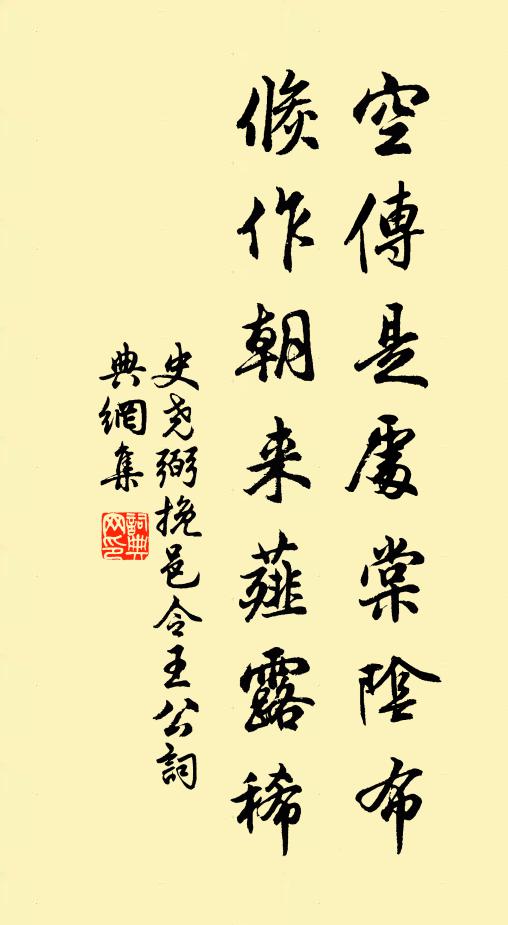 空傳是處棠陰布
倐作朝来薤露稀
史尧弼挽邑令王公詞
典網集
詞典網印